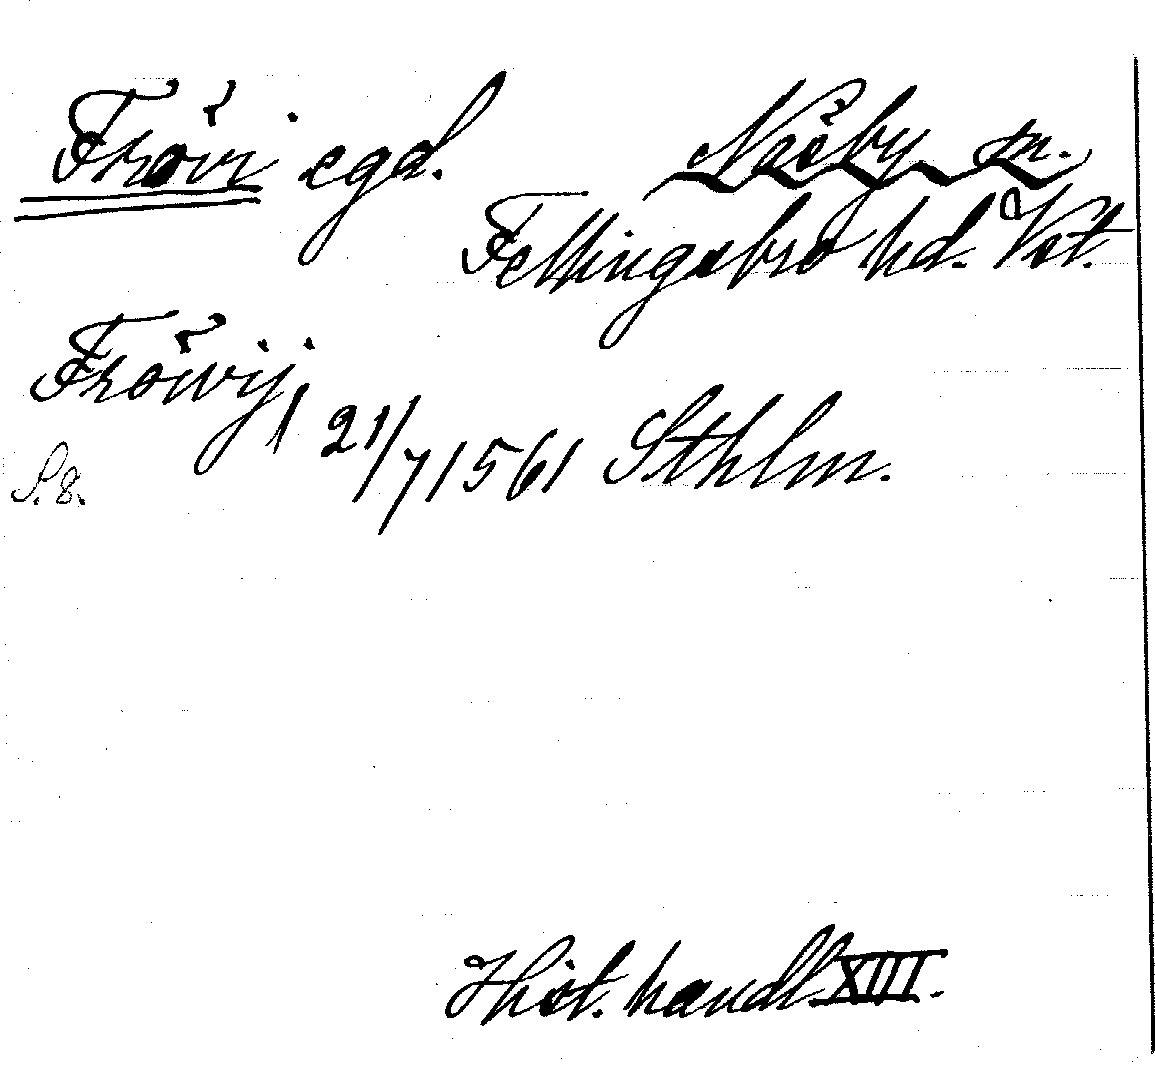 Frövi egd. Näsby sn.
Fellingsbro hd. Vstm.
Fröwij, 21/7 1561 Sthlm.
S. 8.
Hist. handl. XIII.